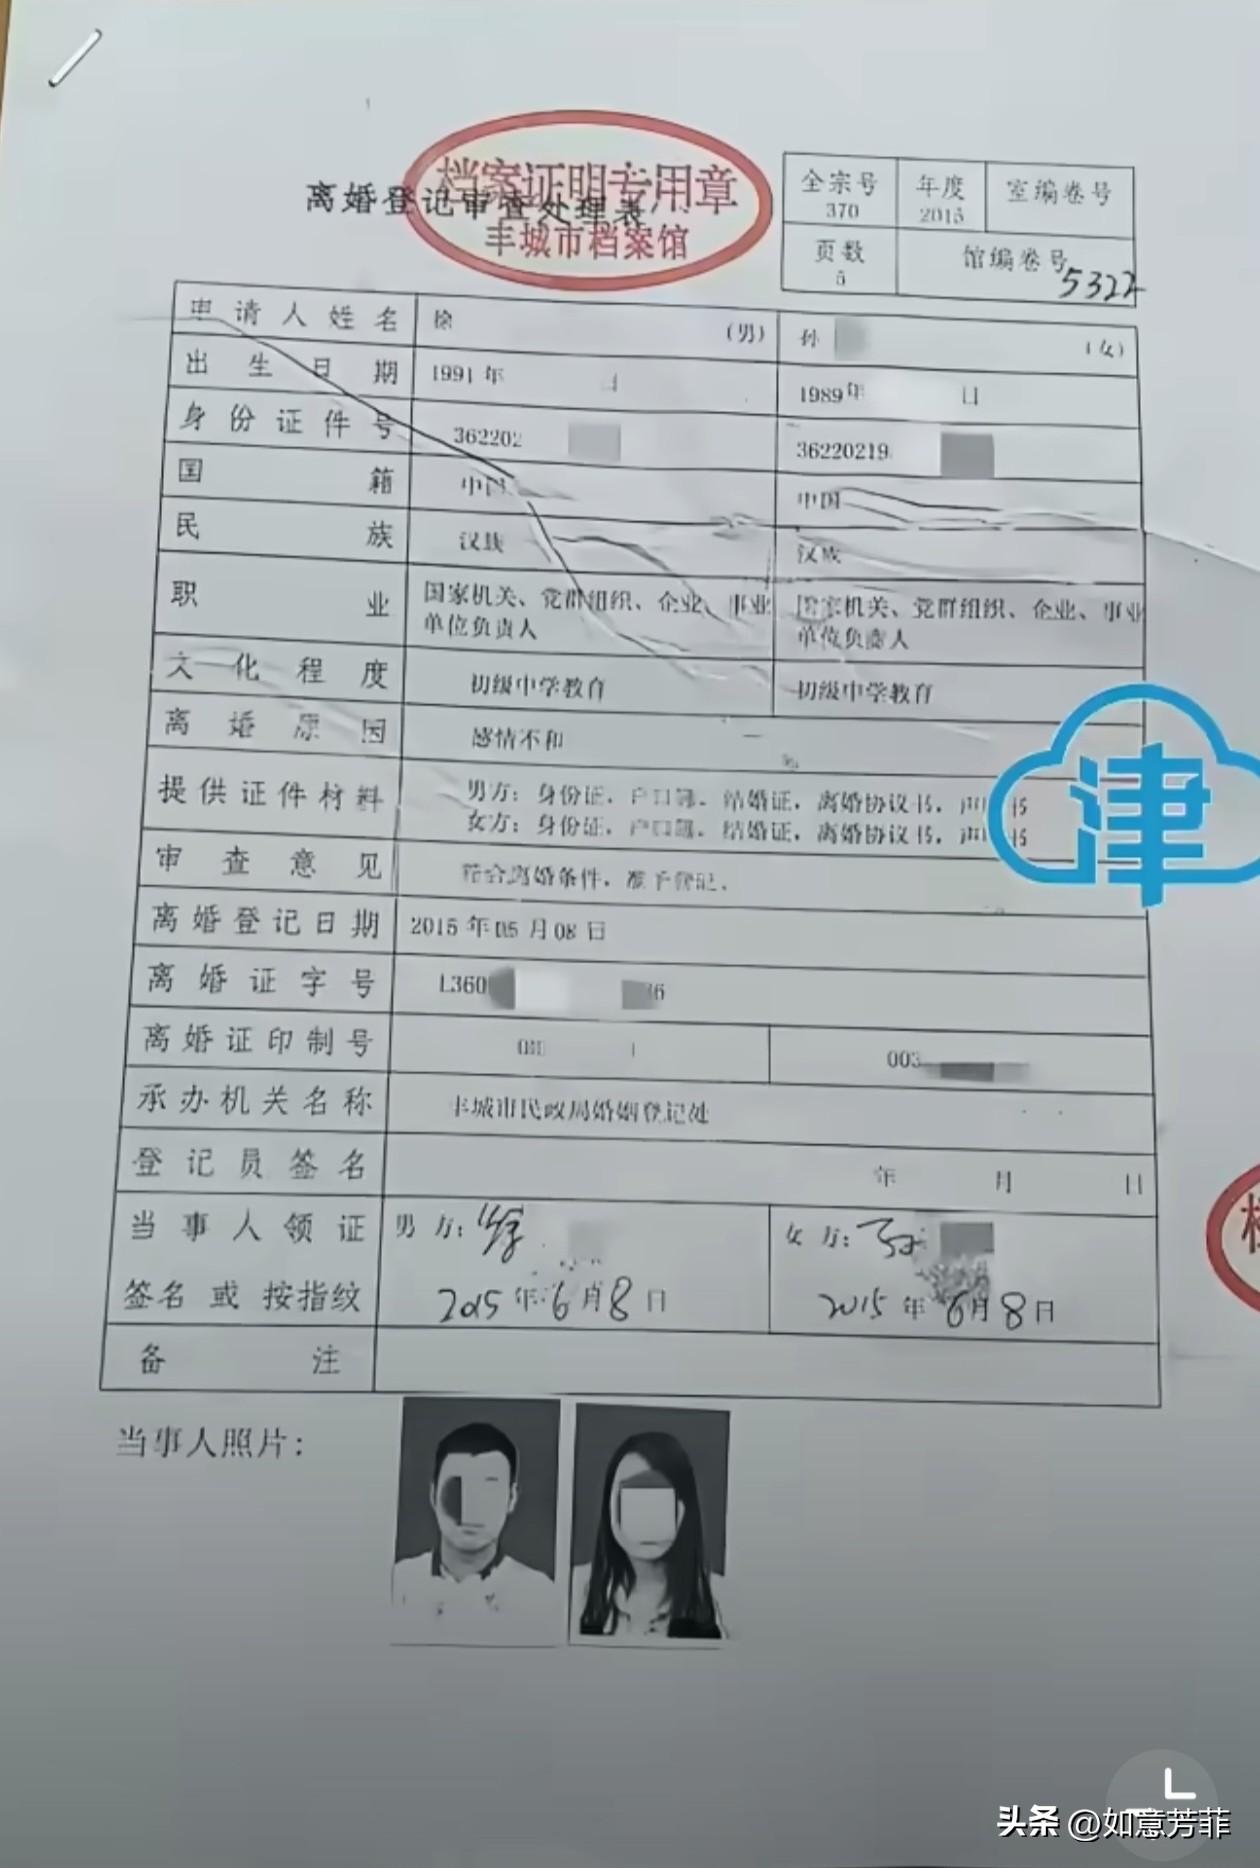 档案证明专用章
离婚登记审查处理表
丰城市档案馆
全宗号 年度 室编卷号
370 2015
页数 馆编卷号
5 5322
申请人姓名 徐 (男) 孙 (女)
出生日期 1991年 日 1989年 日
身份证件号 362202 36220219
国籍 中国 中国
民族 汉族 汉族
职业 国家机关、党群组织、企业、事业单位负责人 国家机关、党群组织、企业、事业单位负责人
文化程度 初级中学教育 初级中学教育
离婚原因 感情不和
提供证件材料 男方：身份证，户口簿，结婚证，离婚协议书，声 书
女方：身份证，户口簿，结婚证，离婚协议书，声 书
审查意见 符合离婚条件，准予登记。
离婚登记日期 2015年05月08日
离婚证字号 L360 6
离婚证印制号 003
承办机关名称 丰城市民政局婚姻登记处
登记员签名 年 月 日
当事人领证 男方：徐 女方：孙
签名或按指纹 2015年6月8日 2015年6月8日
备注
当事人照片：
津
头条 @如意芳菲